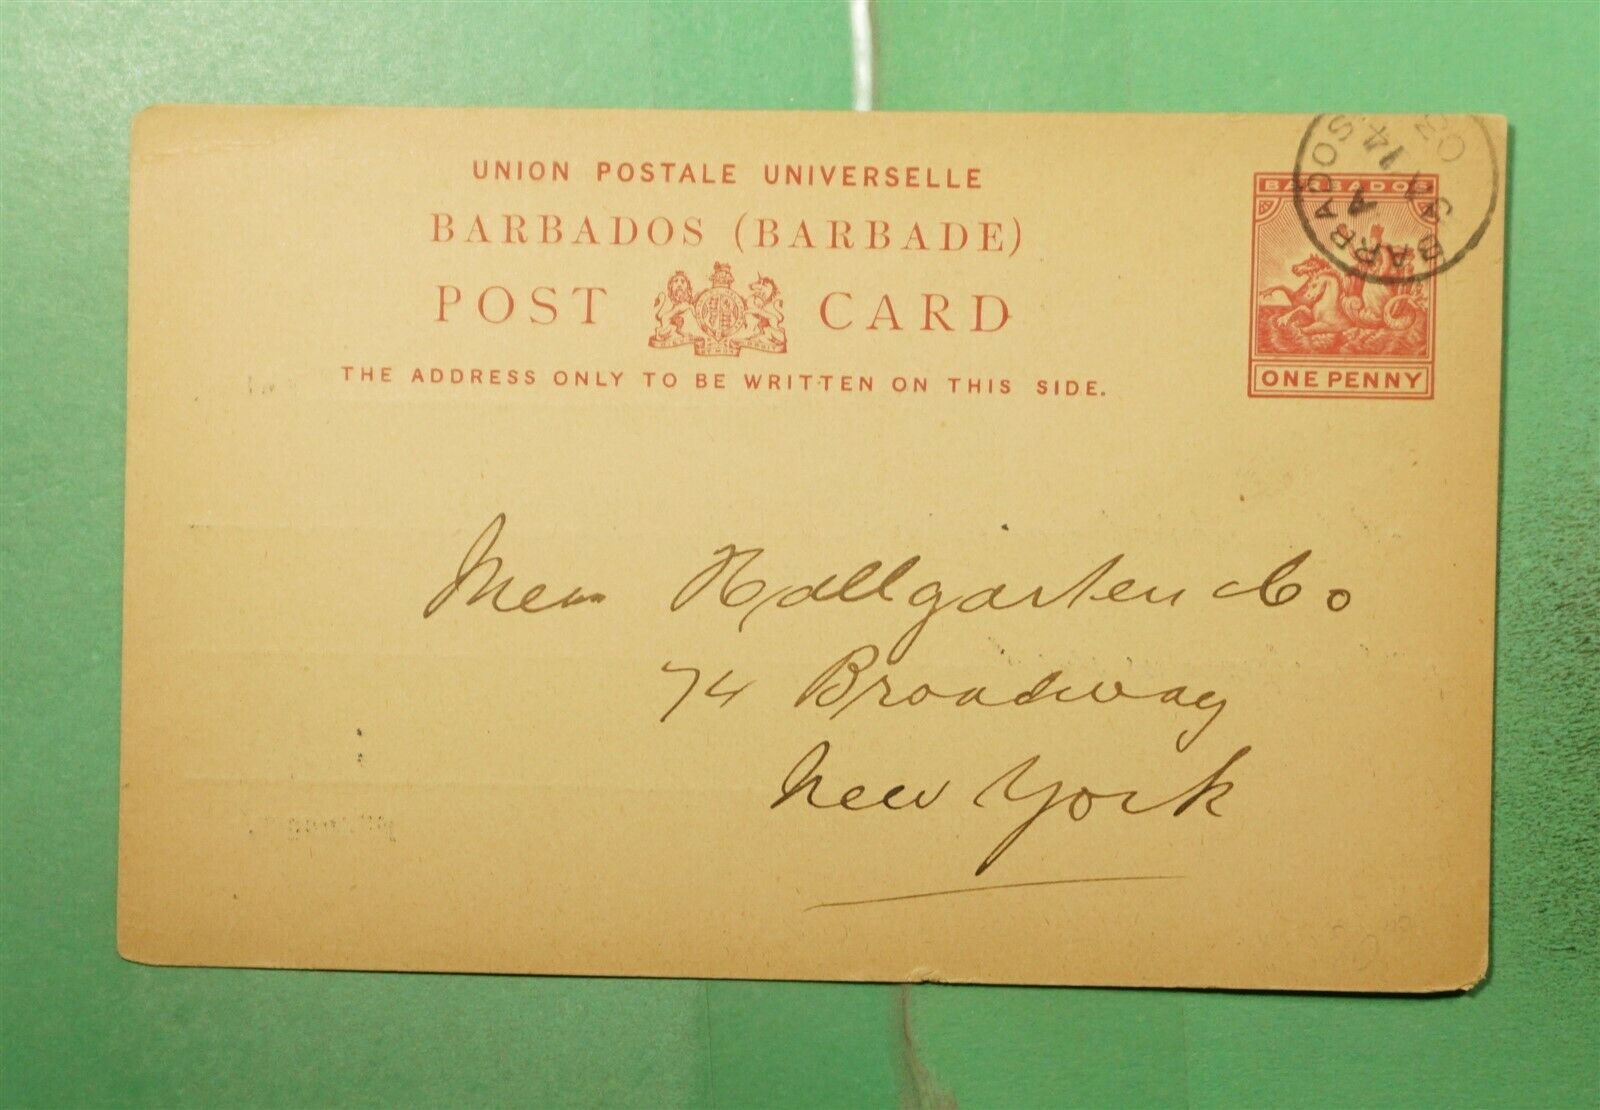 UNION POSTALE UNIVERSELLE
BARBADOS (BARBADE)
POST CARD
THE ADDRESS ONLY TO BE WRITTEN ON THIS SIDE.
BARBADOS
ONE PENNY
BARBADOS
A
14
Mess Hallgarten & Co
74 Broadway
New York